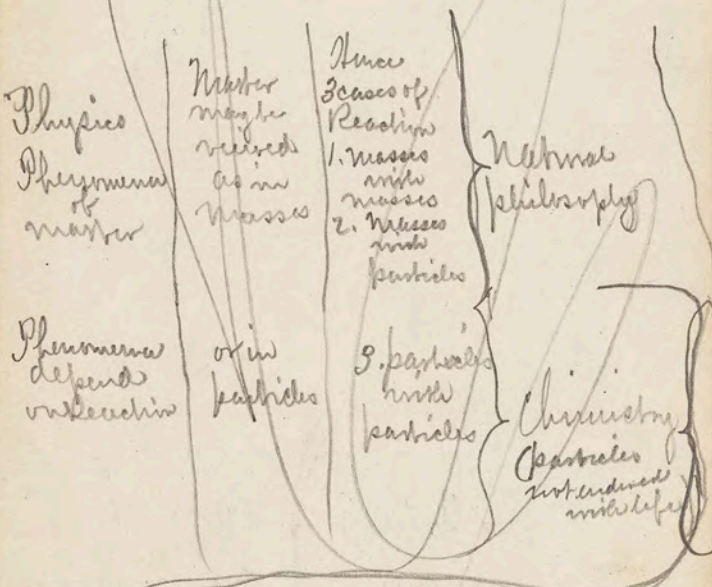 Physics
Phenomena
of
matter
Phenomena
depend
on Reaction
Matter
may be
veiwed
as in
masses
or in
particles
Hence
3 cases of
Reaction
1. Masses
with
masses
2. Masses
with
particles
3. particles
with
particles
Natural
philosophy
Chimistry
(particles
not endowed
with life)